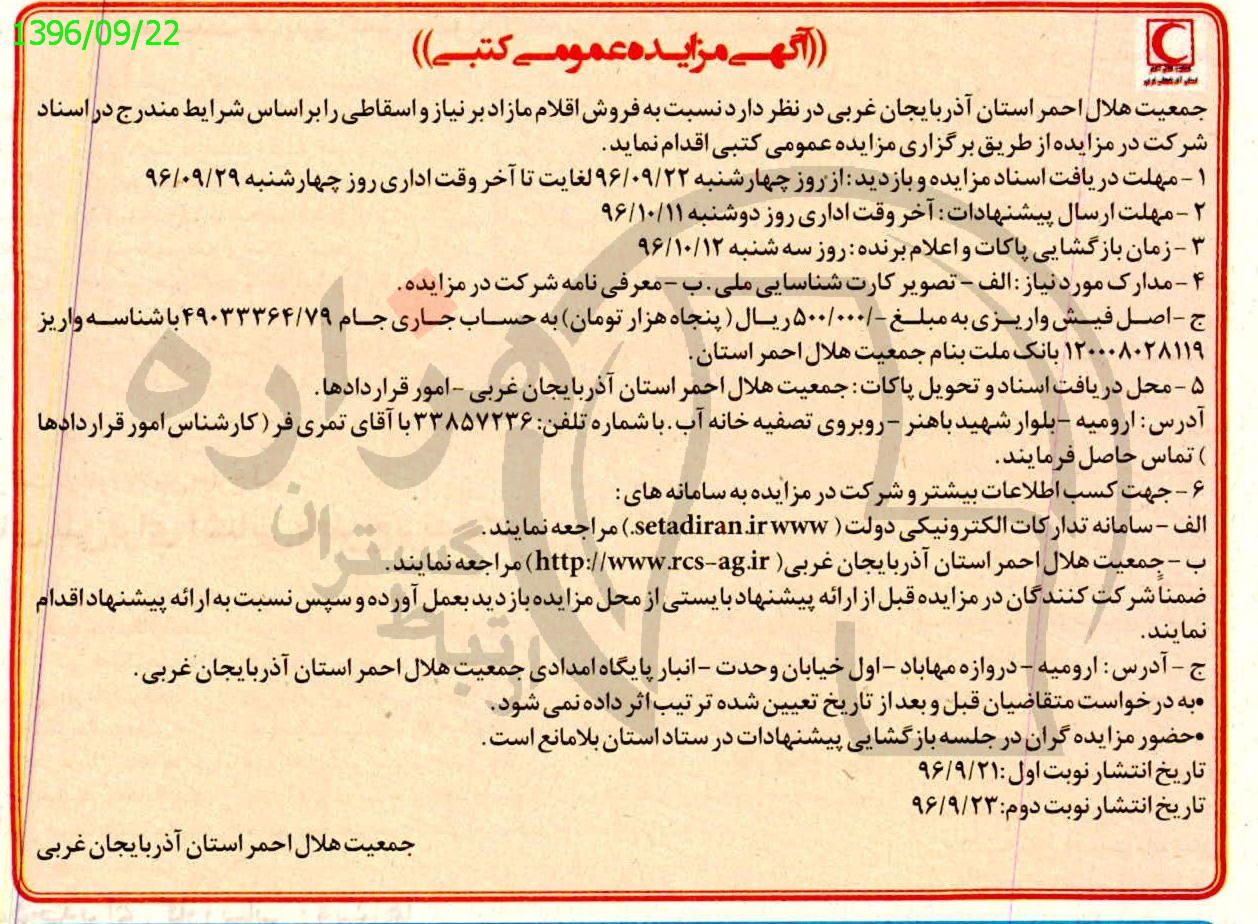 1396/09/22
((آگهی مزایده عمومی کتبی))
جمعیت هلال احمر استان آذربایجان غربی در نظر دارد نسبت به فروش اقلام مازاد بر نیاز و اسقاطی را بر اساس شرایط مندرج در اسناد
شرکت در مزایده از طریق برگزاری مزایده عمومی کتبی اقدام نماید.
۱ - مهلت دریافت اسناد مزایده و بازدید : از روز چهارشنبه ۹۶/۰۹/۲۲ لغایت تا آخر وقت اداری روز چهارشنبه ۹۶/۰۹/۲۹
۲ - مهلت ارسال پیشنهادات : آخر وقت اداری روز دوشنبه ۹۶/۱۰/۱۱
۳ - زمان بازگشایی پاکات و اعلام برنده : روز سه شنبه ۹۶/۱۰/۱۲
۴ - مدارک مورد نیاز : الف - تصویر کارت شناسایی ملی . ب - معرفی نامه شرکت در مزایده .
ج - اصل فیش واریزی به مبلغ -/۵۰۰/۰۰۰ ریال ( پنجاه هزار تومان) به حساب جاری جام ۴۹۰۳۳۳۶۴/۷۹ با شناسه واریز
۱۲۰۰۰۸۰۲۸۱۱۹ بانک ملت بنام جمعیت هلال احمر استان .
۵ - محل دریافت اسناد و تحویل پاکات : جمعیت هلال احمر استان آذربایجان غربی - امور قراردادها.
آدرس : ارومیه - بلوار شهید باهنر - روبروی تصفیه خانه آب . با شماره تلفن: ۳۳۸۵۷۲۳۶ با آقای تمری فر ( کارشناس امور قراردادها
) تماس حاصل فرمایند .
۶ - جهت کسب اطلاعات بیشتر و شرکت در مزایده به سامانه های :
الف - سامانه تدارکات الکترونیکی دولت ( setadiran.ir www.) مراجعه نمایند .
ب - جمعیت هلال احمر استان آذربایجان غربی( http://www.rcs-ag.ir) مراجعه نمایند .
ضمناً شرکت کنندگان در مزایده قبل از ارائه پیشنهاد بایستی از محل مزایده بازدید بعمل آورده و سپس نسبت به ارائه پیشنهاد اقدام
نمایند.
ج - آدرس : ارومیه - دروازه مهاباد - اول خیابان وحدت - انبار پایگاه امدادی جمعیت هلال احمر استان آذربایجان غربی .
•به درخواست متقاضیان قبل و بعد از تاریخ تعیین شده ترتیب اثر داده نمی شود .
•حضور مزایده گران در جلسه بازگشایی پیشنهادات در ستاد استان بلامانع است .
تاریخ انتشار نوبت اول :۹۶/۹/۲۱
تاریخ انتشار نوبت دوم: ۹۶/۹/۲۳
جمعیت هلال احمر استان آذربایجان غربی
هزاره
گستران
ارتباط